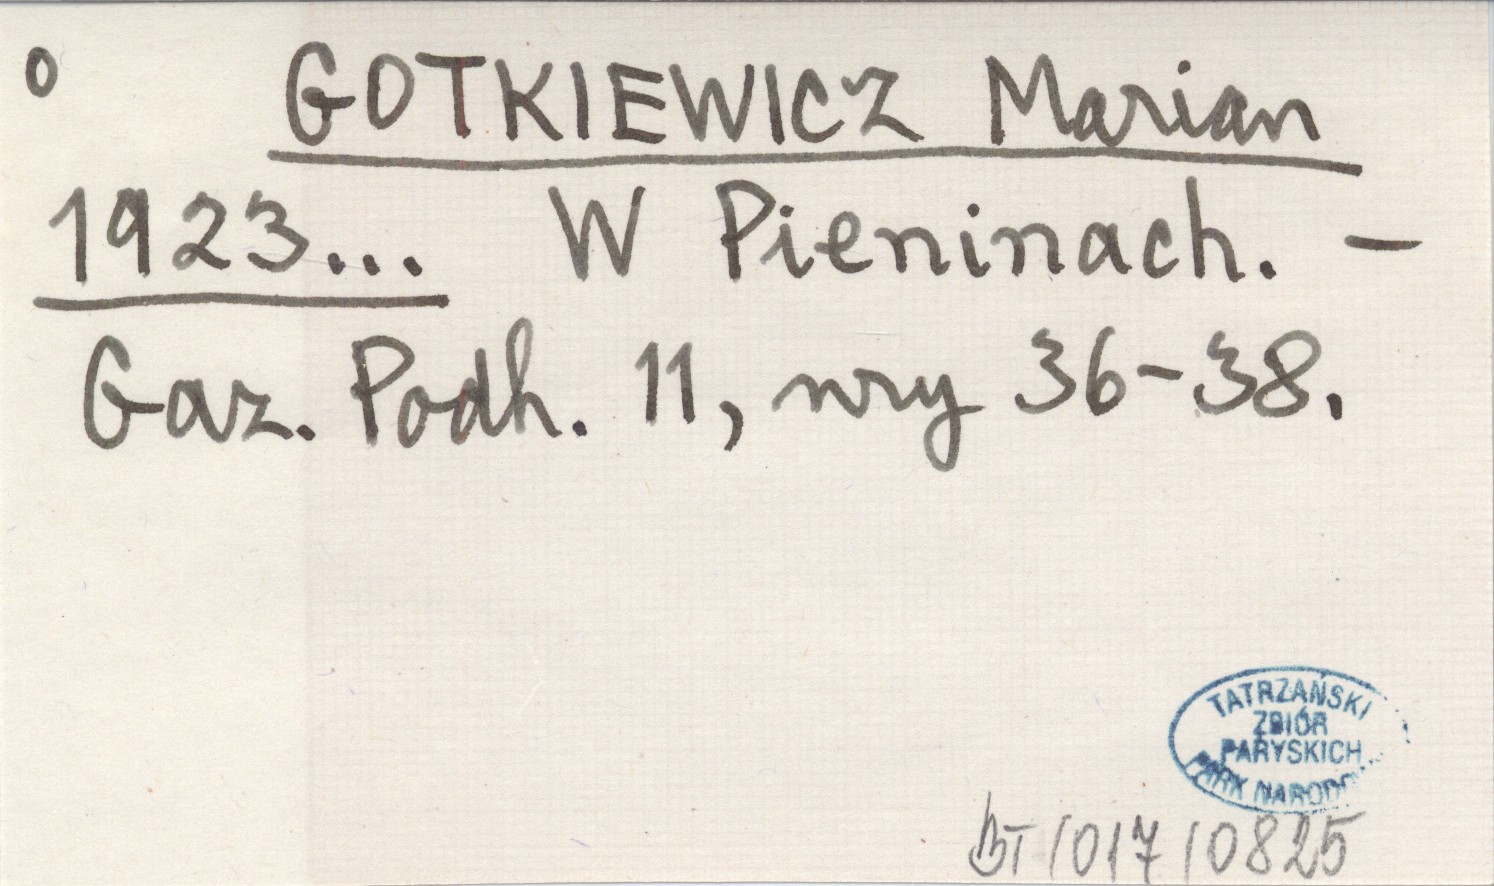 o GOTKIEWICZ Marian
1923... W Pieninach. –
Gaz. Podh. 11, nry 36-38.
TATRZAŃSKI
ZBIÓR
PARYSKICH
PARK
BT/017/0825